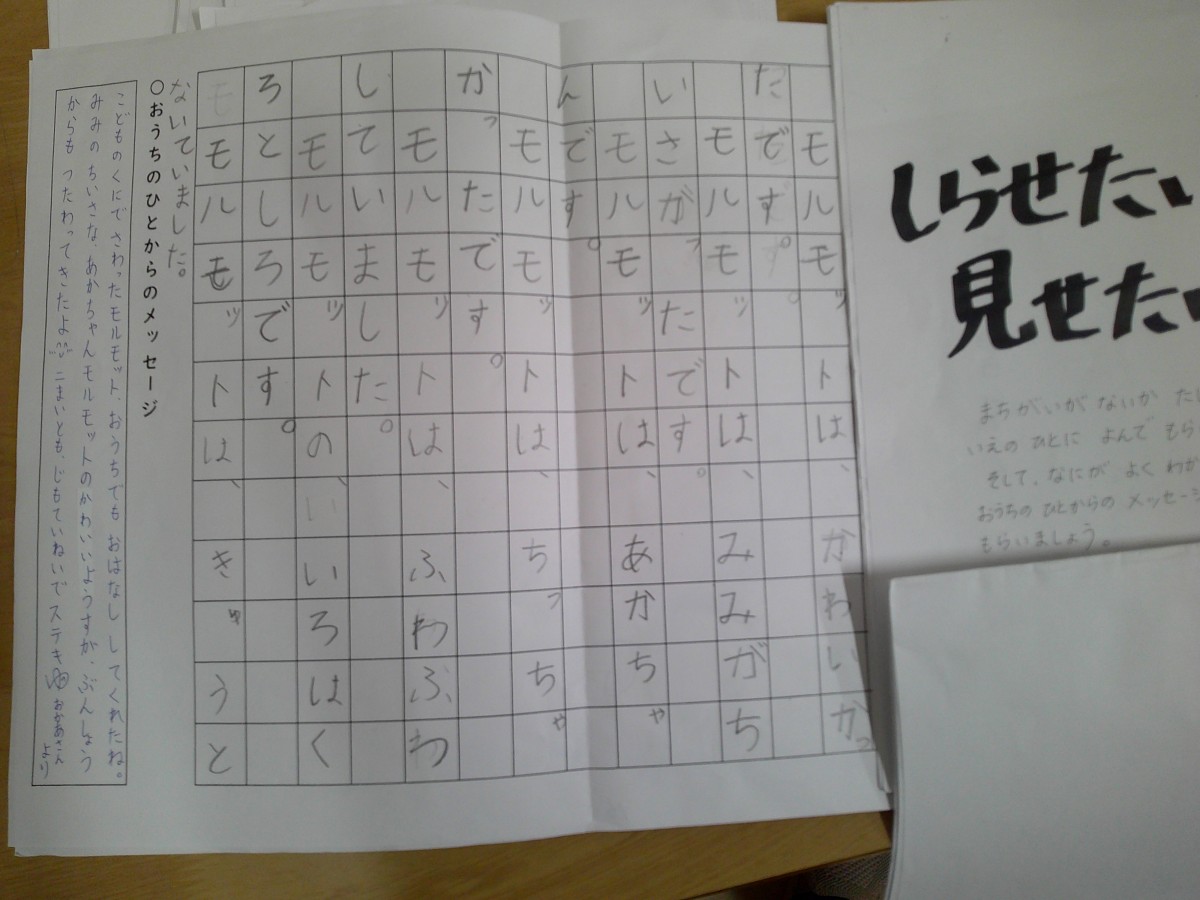 しらせたい
見せたい
まちがいがないか た
いえのひとに よんで もら
そして、なにが よく わか
おうちの ひとからの メッセージ
もらいましょう。
モルモットは、かわいかっ
たです。
モルモットは、みみがち
いさがったです。
モルモットは、あかちゃ
んです。
モルモットは、ちっちゃ
かったです。
モルモットは、ふわぶわ
していました。
モルモットの、いろはく
ろとしろです。
モルモットは、きゅうと
ないていました。
○おうちのひとからのメッセージ
こどものくにでさわったモルモット、おうちでも おはなし してくれたね。
みみの ちいさな、あかちゃんモルモットのかわいいようすが、ぶんしょう
からも つたわって きたよ こまいとも、じもていねいでステキ おかあさん
より